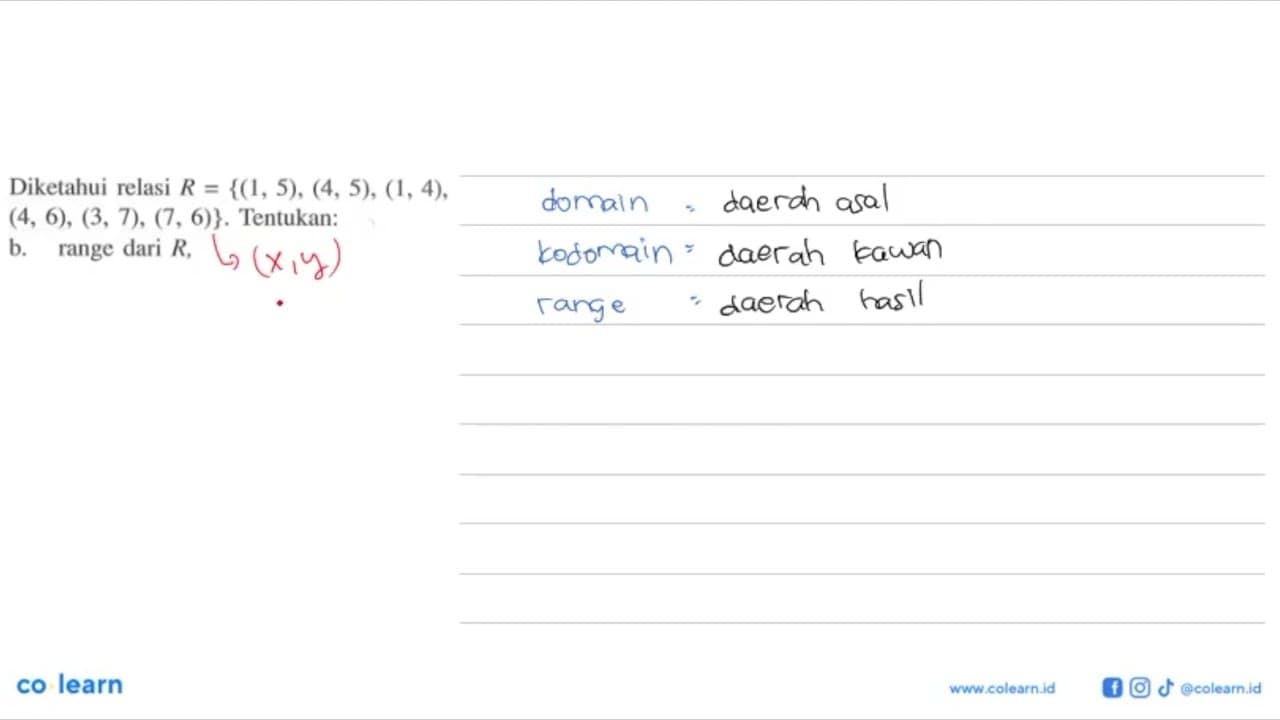 Diketahui relasi R = {(1, 5), (4, 5), (1, 4),
(4, 6), (3, 7), (7, 6)}. Tentukan:
b. range dari R,
↳ (x,y)
domain = daerah asal
kodomain = daerah kawan
range = daerah hasil
co learn
www.colearn.id
@colearn.id